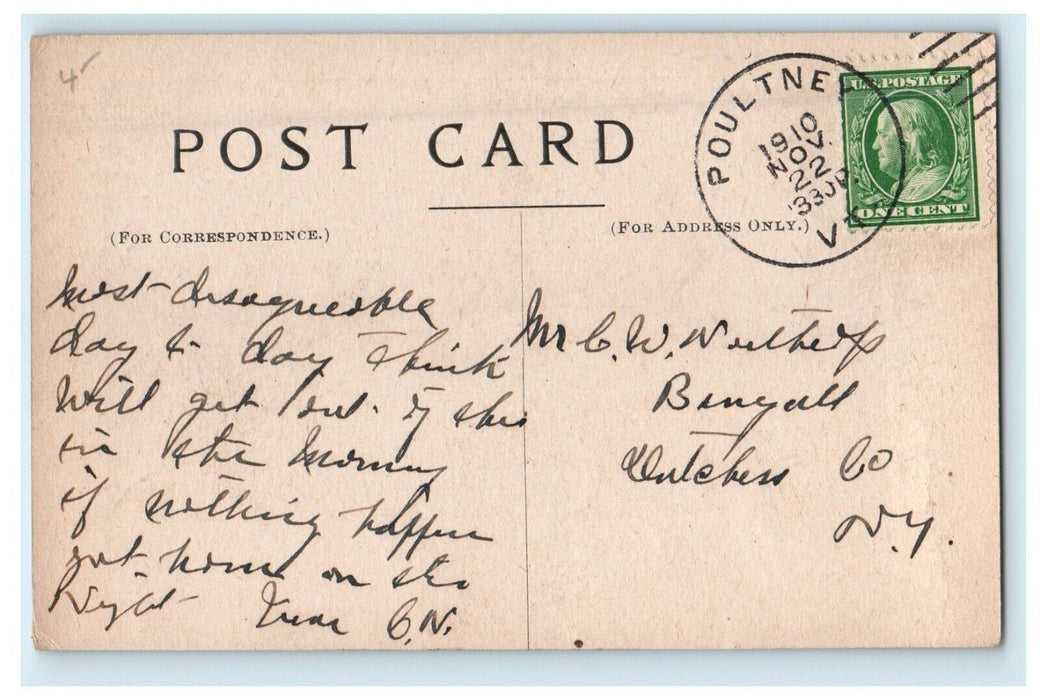 4
POST CARD
(FOR CORRESPONDENCE.)
(FOR ADDRESS ONLY.)
POULTNEY
1910
NOV.
22
330P
VT.
U.S. POSTAGE
ONE CENT
most disagreeable
day to day think
will get out of this
in the morning
if nothing happen
home on the
Night C.N.
Mr C. W. Northup
Bangall
Dutchess Co
N.Y.